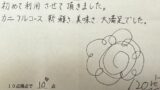 初めて利用させて頂きました。
カニフルコース 新鮮さ 美味さ 大満足でした。
10点満点で 10点
120点